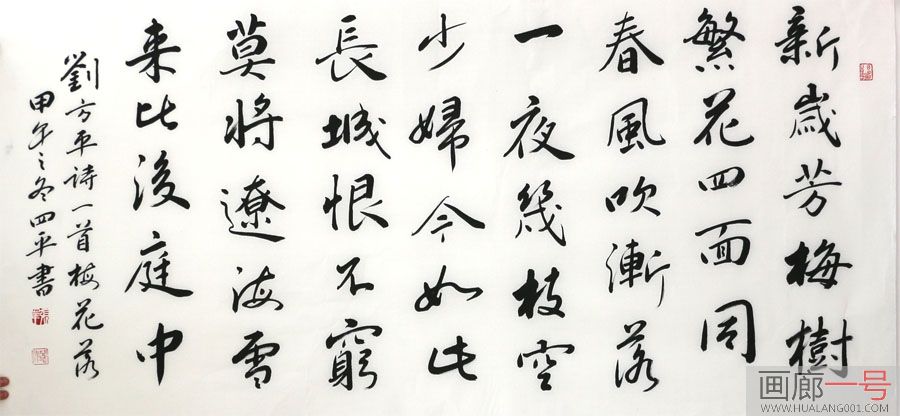 新歲芳梅樹
繁花四面同
春風吹漸落
一夜幾枝空
少婦今如此
長城恨不窮
莫將遼海雪
来比後庭中
劉方平诗一首梅花落
甲午之冬四平書
画廊一号
WWW.HUALANG001.COM